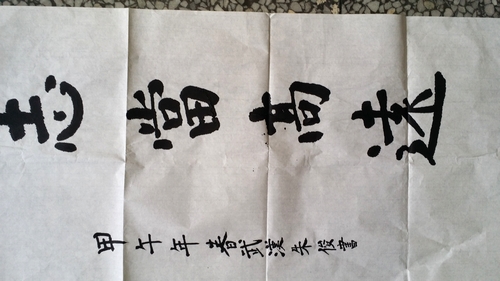 志當高遠
甲午年春武漢朱俊書